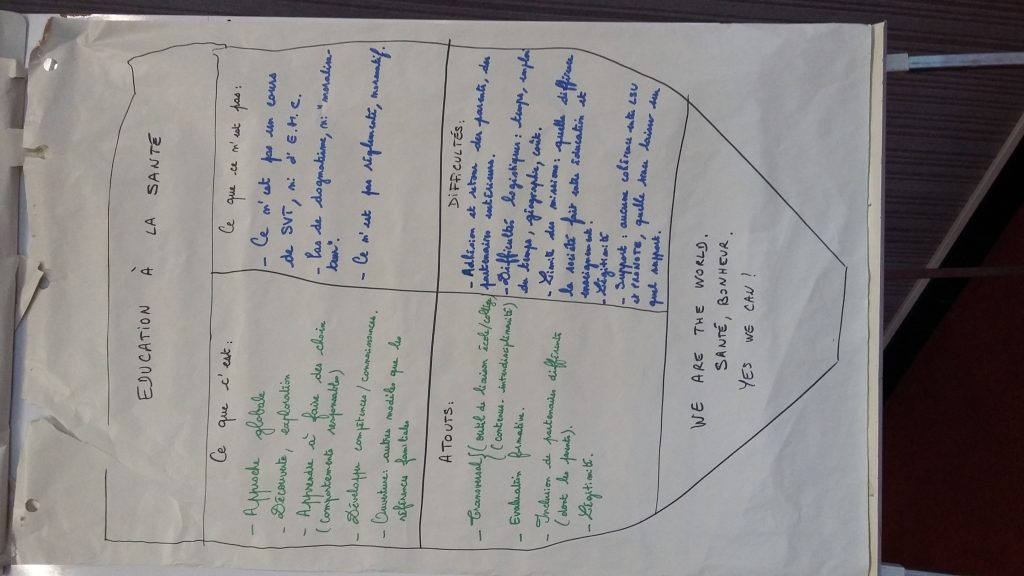 EDUCATION À LA SANTÉ
Ce que c'est:
- Approche globale
- Découverte, exploration
- Apprendre à faire des choix
(comportements responsables)
- Développer compétences/connaissances.
- Ouverture: autres modèles que les
références familiales
Ce que ce n'est pas:
- Ce n'est pas un cours
de SVT, ni d'E.M.C.
- Pas de dogmatisme, ni "moralisa-
teur".
- Ce n'est pas réglementé, normatif.
ATOUTS:
- Transversal { (outil de liaison école/collège,
(contenus - interdisciplinarité)
- Evaluation formative.
- Inclusion de partenaires différents
(dont les parents).
- Légitimité.
DIFFICULTÉS:
- Adhésion et retour des parents, des
partenaires extérieurs.
- Difficultés logistiques: temps, emploi
du temps, géographie, coûts.
- Limite des missions: quelle différence
la société fait entre éducation et
enseignement?
- Légitimité
- Support: aucune cohérence entre LSU
et, quelle trace laisser sur
quel support.
WE ARE THE WORLD.
SANTÉ, BONHEUR.
YES WE CAN!